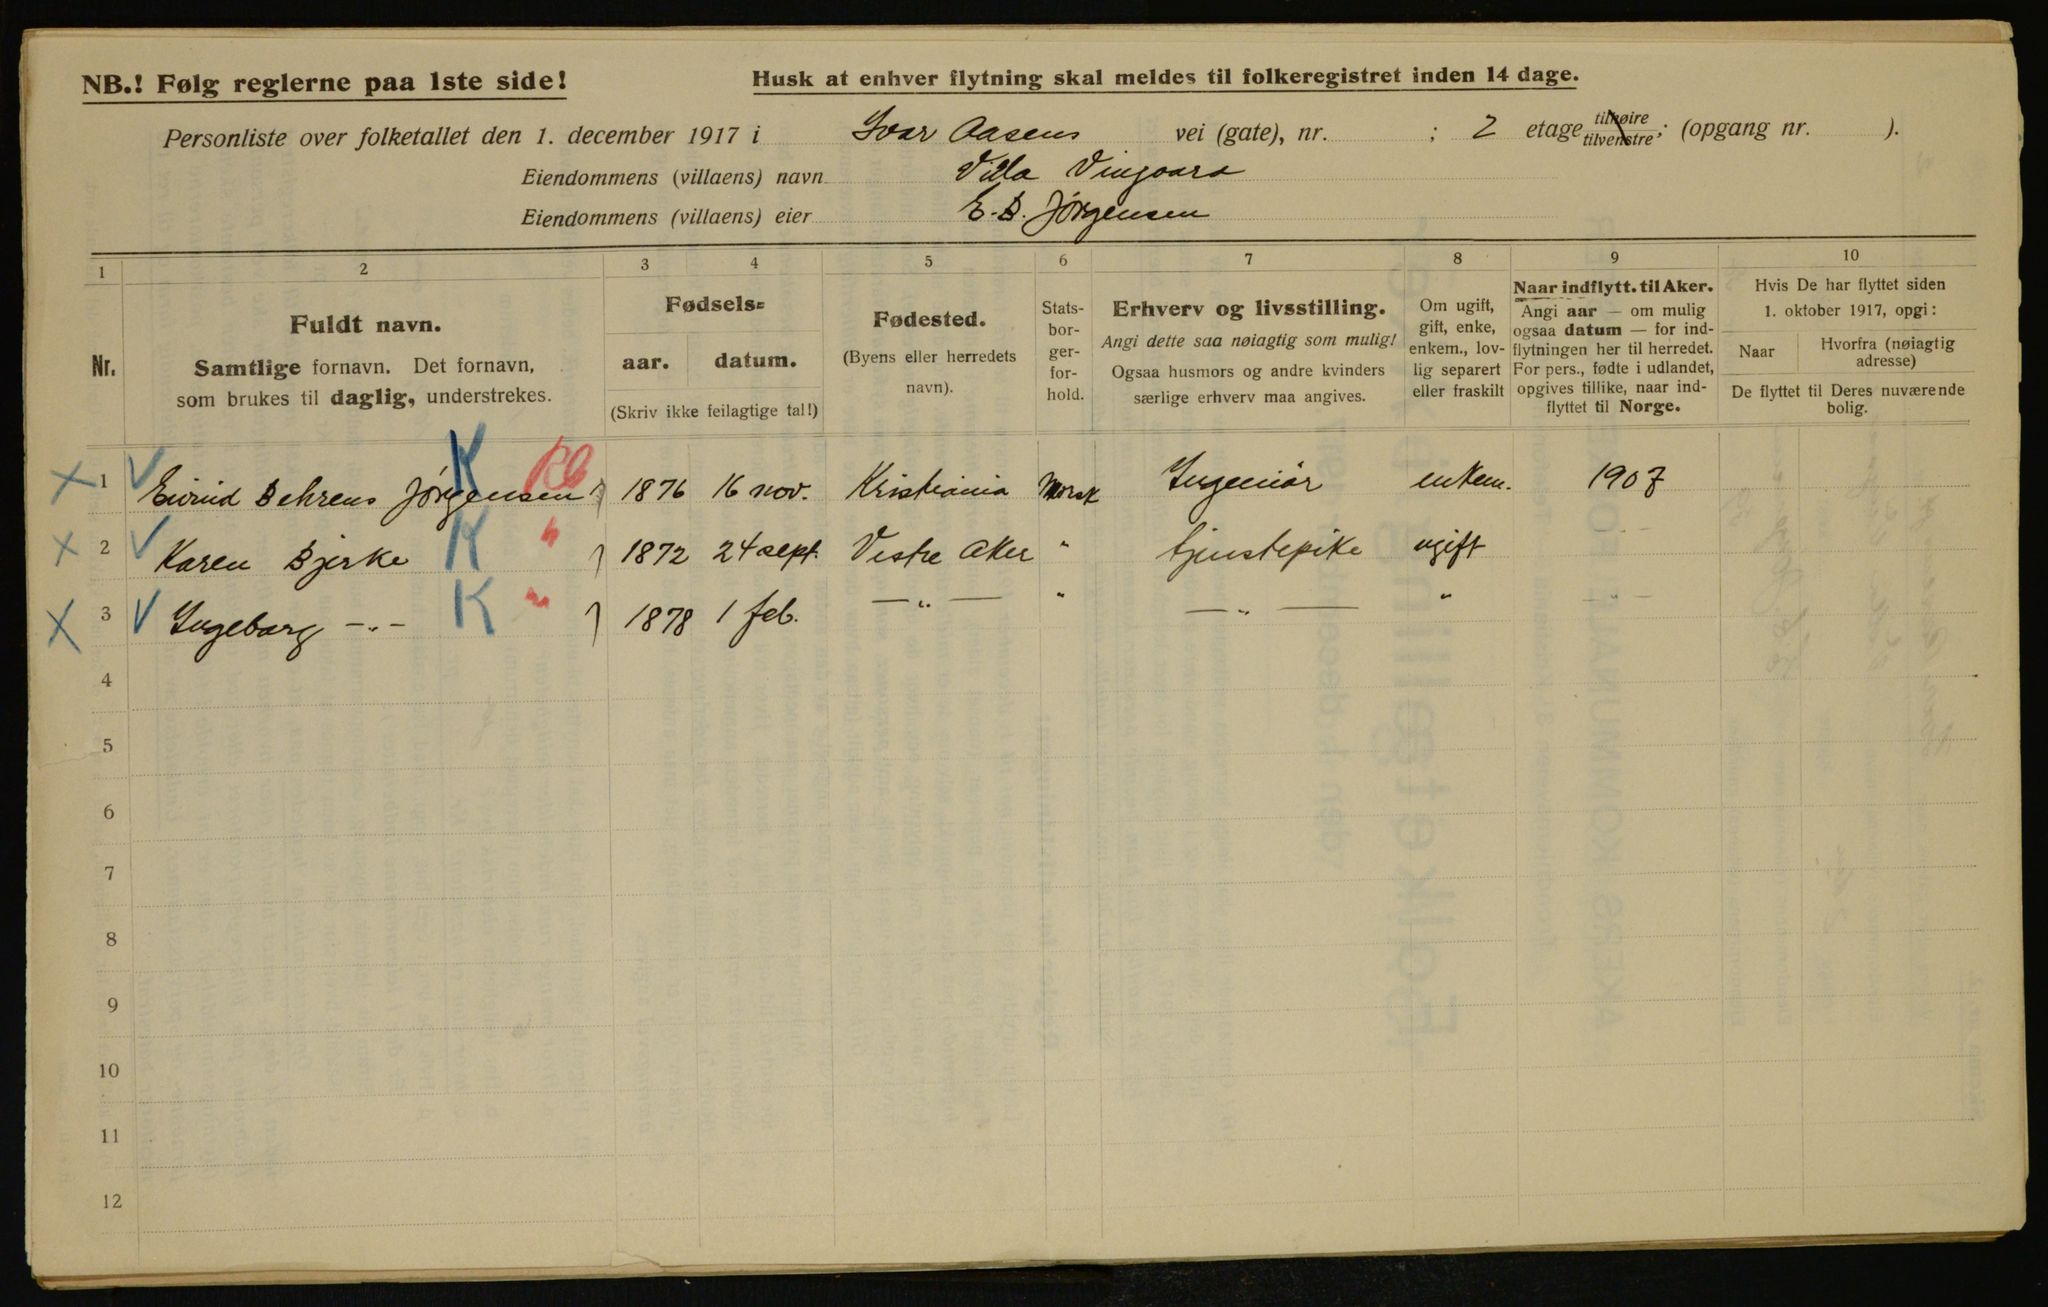 NB.! Følg reglerne paa 1ste side!
Husk at enhver flytning skal meldes til folkeregistret inden 14 dage.
Personliste over folketallet den 1. december 1917 i Ivar Aasens vei (gate), nr. ; 2 etage tilhøire tilvenstre; (opgang nr. ).
Eiendommens (villaens) navn Villa Vingaara
Eiendommens (villaens) eier E. B. Jørgensen
1 2 3 4 5 6 7 8 9 10
Nr.
Fuldt navn.
Samtlige fornavn. Det fornavn,
som brukes til daglig, understrekes.
Fødsels=
aar. datum.
(Skriv ikke feilagtige tal!)
Fødested.
(Byens eller herredets
navn).
Stats-
bor-
ger-
for-
hold.
Erhverv og livsstilling.
Angi dette saa nøiagtig som mulig!
Ogsaa husmors og andre kvinders
særlige erhverv maa angives.
Om ugift,
gift, enke,
enkem., lov-
lig separert
eller fraskilt
Naar indflytt. til Aker.
Angi aar — om mulig
ogsaa datum — for ind-
flytningen her til herredet.
For pers., fødte i udlandet,
opgives tillike, naar ind-
flyttet til Norge.
Hvis De har flyttet siden
1. oktober 1917, opgi:
Naar
Hvorfra (nøiagtig
adresse)
De flyttet til Deres nuværende
bolig.
K
1 Eivind Behrens Jørgensen 1876 16 nov. Kristiania Norsk Ingeniør enkem. 1907
2 Karen Bjerke K " 1872 24 sept. Vestre Aker " tjenstepike ugift
3 Ingeborg —"— K " 1878 1 feb. —"— " —"— "
4
5
6
7
8
9
10
11
12